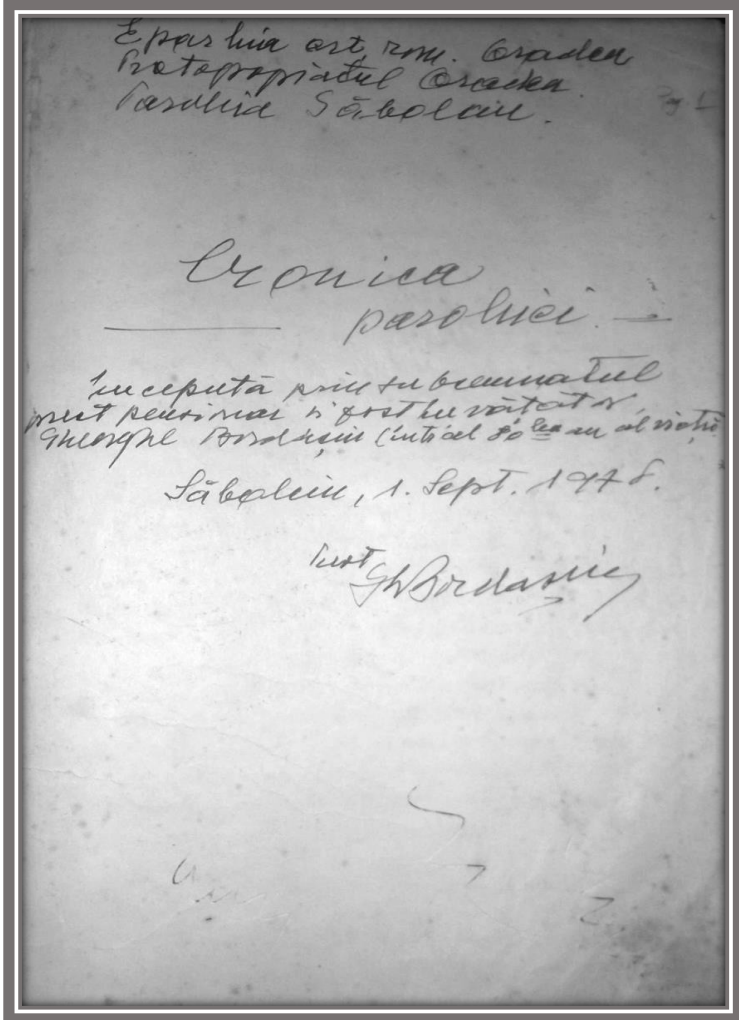 Eparhia ort. rom. Oradea
Protopopiatul Oradea.
Parohia Săbolciu.
Pag 1
Cronica
parohiei.
Începută prin subsemnatul
preot pensionar și fost învățător,
Gheorghe Bordașiu (întîi al 80 lea an al vieții
Săbolciu, 1. Sept. 1978.
Preot
Gh Bordașiu